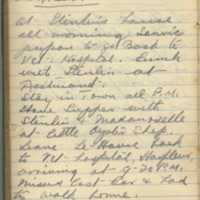 At Stenlin's house
all morning. Service
prepare to go Back to
Vet. Hospital. Lunch
with Stenlin at
Stay in town all P.M.
Have Supper with
Stenlin & Madamoselle
at Little Oyster Shop.
Leave Le Havre back
to Vet hospital, Harfleur,
arriving at 9-20 P.M.
Missed Last Car & had
to walk home.